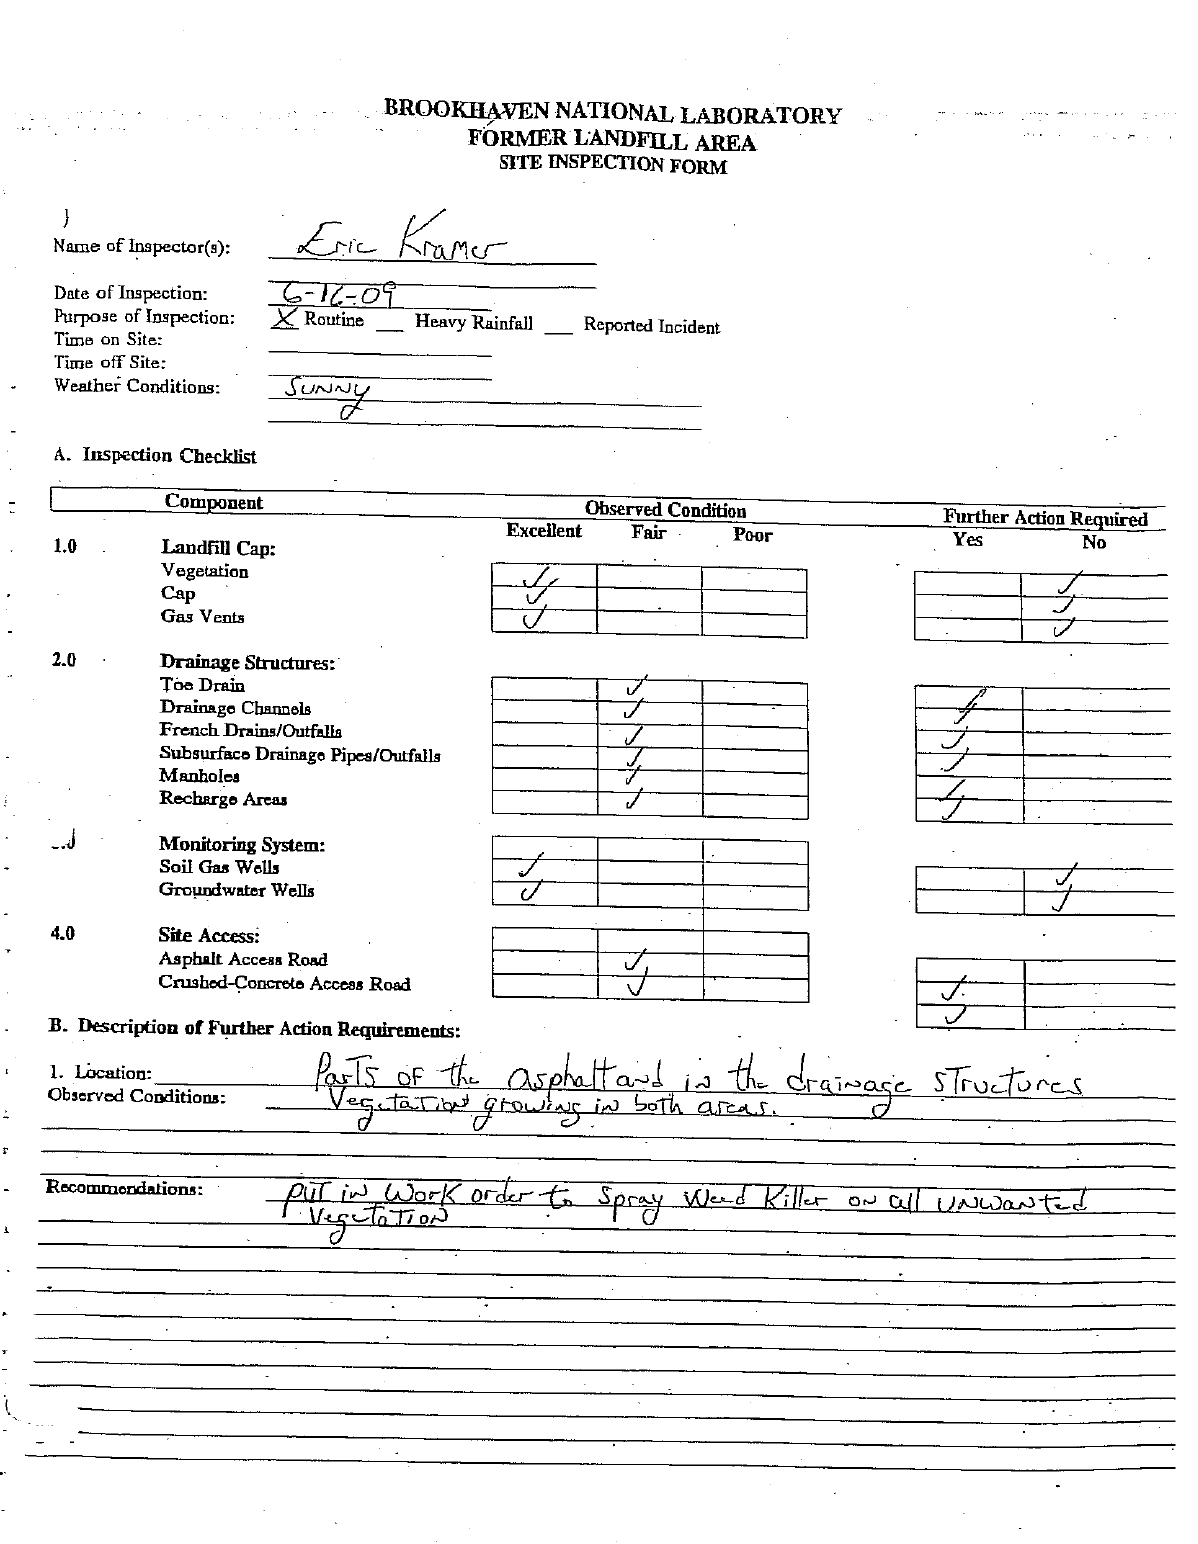 BROOKHAVEN NATIONAL LABORATORY
FORMER LANDFILL AREA
SITE INSPECTION FORM
Name of Inspector(s): Eric Kramer
Date of Inspection: 6-16-09
Purpose of Inspection: X Routine ___ Heavy Rainfall ___ Reported Incident
Time on Site:
Time off Site:
Weather Conditions: Sunny
A. Inspection Checklist
Component Observed Condition Further Action Required
Excellent Fair Poor Yes No
1.0 Landfill Cap:
Vegetation ✓ ✓
Cap ✓ ✓
Gas Vents ✓ ✓
2.0 Drainage Structures:
Toe Drain ✓ ✓
Drainage Channels ✓ ✓
French Drains/Outfalls ✓ ✓
Subsurface Drainage Pipes/Outfalls ✓ ✓
Manholes ✓ ✓
Recharge Areas ✓ ✓
Monitoring System:
Soil Gas Wells ✓ ✓
Groundwater Wells ✓ ✓
4.0 Site Access:
Asphalt Access Road ✓ ✓
Crushed-Concrete Access Road ✓ ✓
B. Description of Further Action Requirements:
1. Location: Parts of the asphalt and in the drainage structures
Observed Conditions: Vegetation growing in both areas.
Recommendations: Put in work order to spray weed killer on all unwanted
vegetation